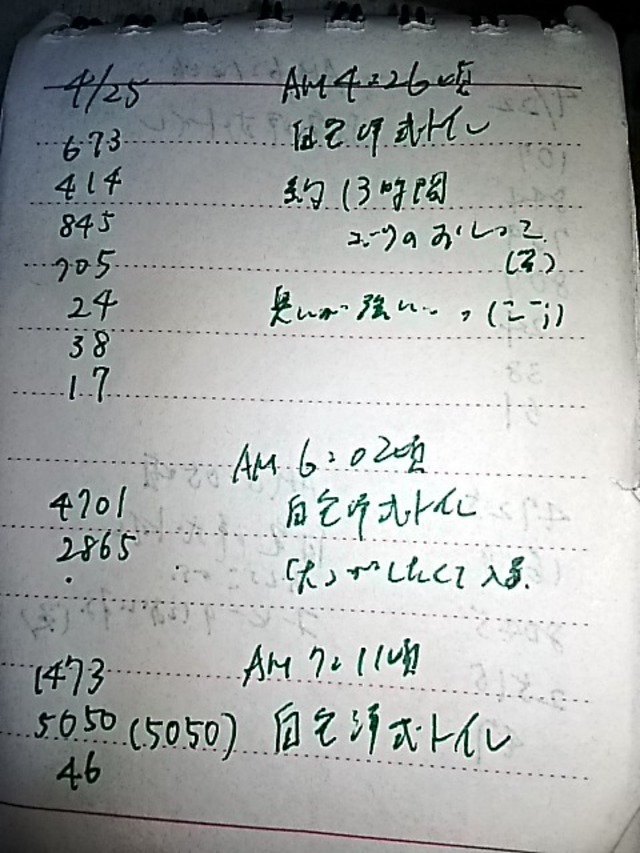 4/25 AM 4:26頃
673 自宅洋式トイレ
414 約13時間
845 ユーワのおしっこ
705 (笑)
24 臭いが強い…
38
17
AM 6:02頃
4701 自宅洋式トイレ
2865 「大」がしたくて入る.
1473 AM 7:11頃
5050 (5050) 自宅洋式トイレ
46